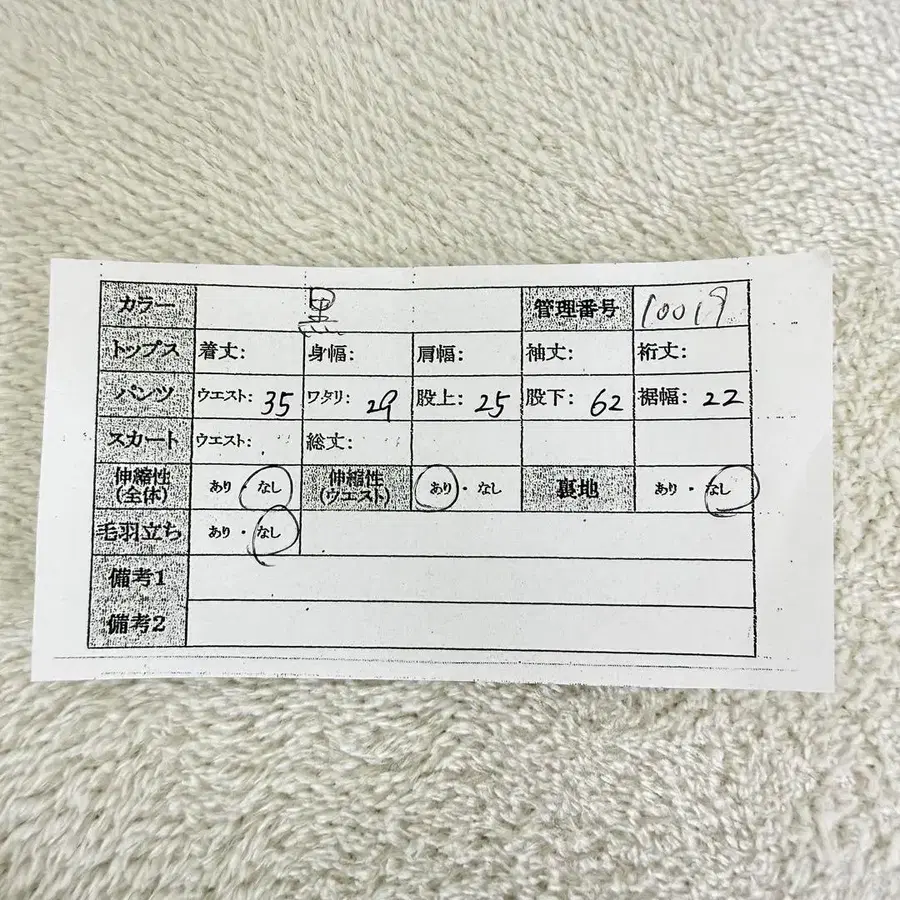 カラー 黒 管理番号 10019
トップス 着丈: 身幅: 肩幅: 袖丈: 裄丈:
パンツ ウエスト: 35 ワタリ: 29 股上: 25 股下: 62 裾幅: 22
スカート ウエスト: 総丈:
伸縮性(全体) あり・なし 伸縮性(ウエスト) あり・なし 裏地 あり・なし
毛羽立ち あり・なし
備考1
備考2